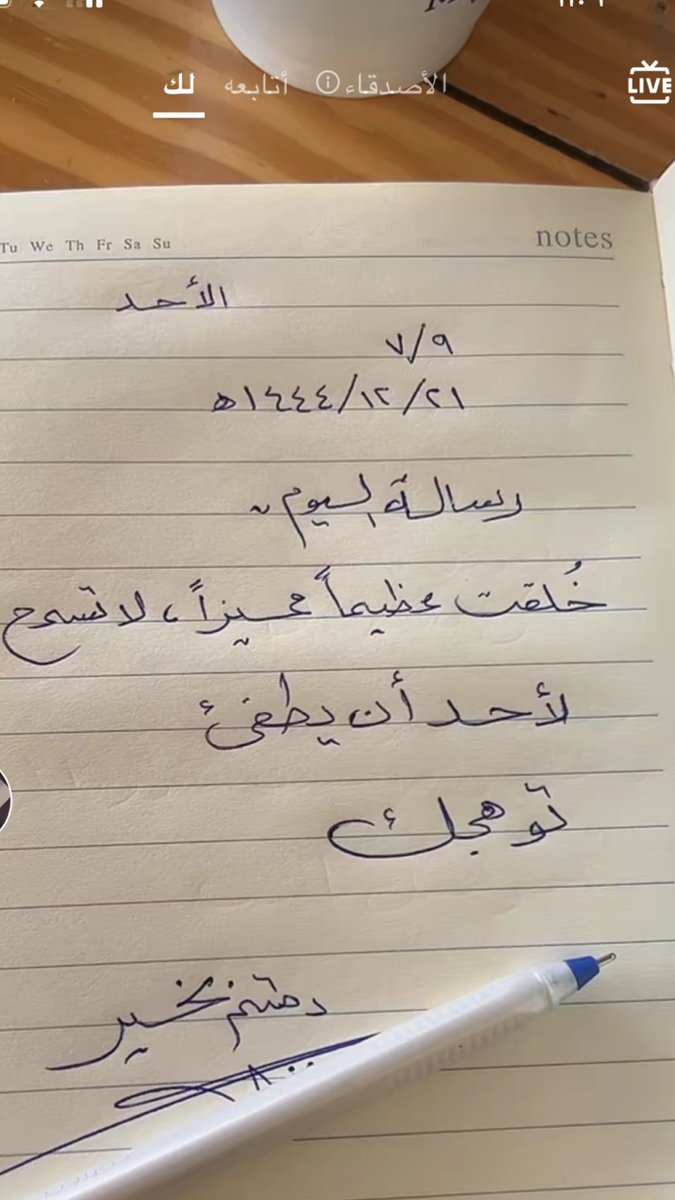 لك أتابعه الأصدقاء
LIVE
Tu We Th Fr Sa Su
notes
الأحد
٧/٩
٢١/١٢/١٤٤٤ه
رسالة اليوم~
خُلقت عظيماً مميزاً، لا تسمح
لأحد أن يطفئ
توهجك
دمتم بخير